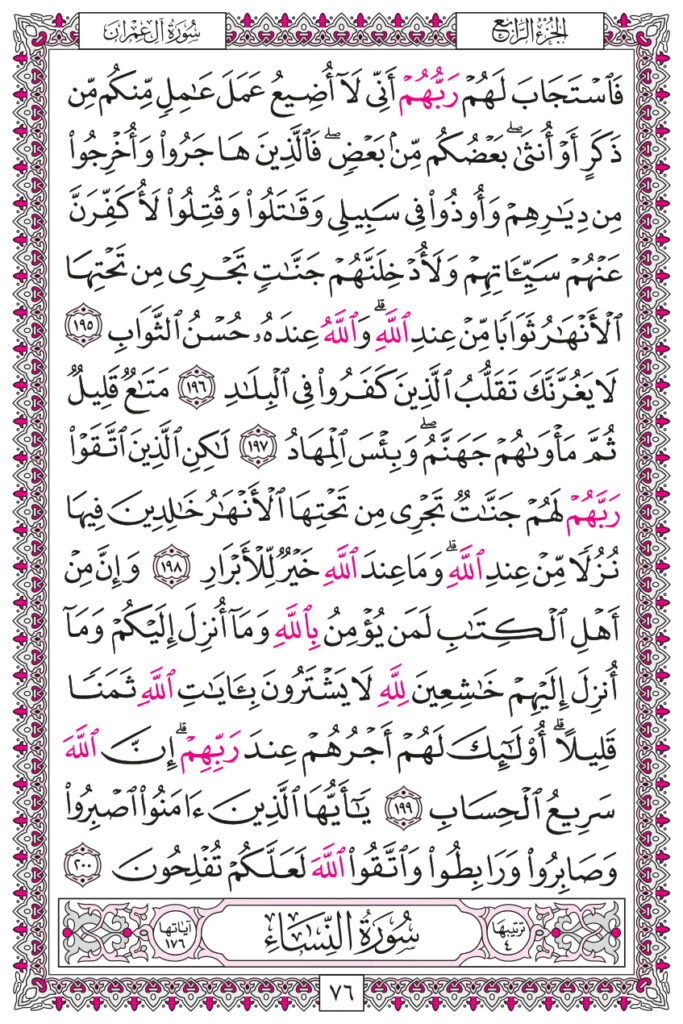 الجزء الرابع
سورة آل عمران
فَٱسۡتَجَابَ لَهُمۡ رَبُّهُمۡ أَنِّي لَآ أُضِيعُ عَمَلَ عَٰمِلٖ مِّنكُم مِّن
ذَكَرٍ أَوۡ أُنثَىٰۖ بَعۡضُكُم مِّنۢ بَعۡضٖۖ فَٱلَّذِينَ هَاجَرُواْ وَأُخۡرِجُواْ
مِن دِيَٰرِهِمۡ وَأُوذُواْ فِي سَبِيلِي وَقَٰتَلُواْ وَقُتِلُواْ لَأُكَفِّرَنَّ
عَنۡهُمۡ سَيِّـَٔاتِهِمۡ وَلَأُدۡخِلَنَّهُمۡ جَنَّٰتٖ تَجۡرِي مِن تَحۡتِهَا
ٱلۡأَنۡهَٰرُ ثَوَابٗا مِّنۡ عِندِ ٱللَّهِۚ وَٱللَّهُ عِندَهُۥ حُسۡنُ ٱلثَّوَابِ ١٩٥
لَا يَغُرَّنَّكَ تَقَلُّبُ ٱلَّذِينَ كَفَرُواْ فِي ٱلۡبِلَٰدِ ١٩٦ مَتَٰعٞ قَلِيلٞ
ثُمَّ مَأۡوَىٰهُمۡ جَهَنَّمُۖ وَبِئۡسَ ٱلۡمِهَادُ ١٩٧ لَٰكِنِ ٱلَّذِينَ ٱتَّقَوۡاْ
رَبَّهُمۡ لَهُمۡ جَنَّٰتٞ تَجۡرِي مِن تَحۡتِهَا ٱلۡأَنۡهَٰرُ خَٰلِدِينَ فِيهَا
نُزُلٗا مِّنۡ عِندِ ٱللَّهِۗ وَمَا عِندَ ٱللَّهِ خَيۡرٞ لِّلۡأَبۡرَارِ ١٩٨ وَإِنَّ مِنۡ
أَهۡلِ ٱلۡكِتَٰبِ لَمَن يُؤۡمِنُ بِٱللَّهِ وَمَآ أُنزِلَ إِلَيۡكُمۡ وَمَآ
أُنزِلَ إِلَيۡهِمۡ خَٰشِعِينَ لِلَّهِ لَا يَشۡتَرُونَ بِـَٔايَٰتِ ٱللَّهِ ثَمَنٗا
قَلِيلًاۚ أُوْلَٰٓئِكَ لَهُمۡ أَجۡرُهُمۡ عِندَ رَبِّهِمۡۗ إِنَّ ٱللَّهَ
سَرِيعُ ٱلۡحِسَابِ ١٩٩ يَٰٓأَيُّهَا ٱلَّذِينَ ءَامَنُواْ ٱصۡبِرُواْ
وَصَابِرُواْ وَرَابِطُواْ وَٱتَّقُواْ ٱللَّهَ لَعَلَّكُمۡ تُفۡلِحُونَ ٢٠٠
ترتيبها ٤
سُورَةُ النِّسَاءِ
آياتها ١٧٦
٧٦